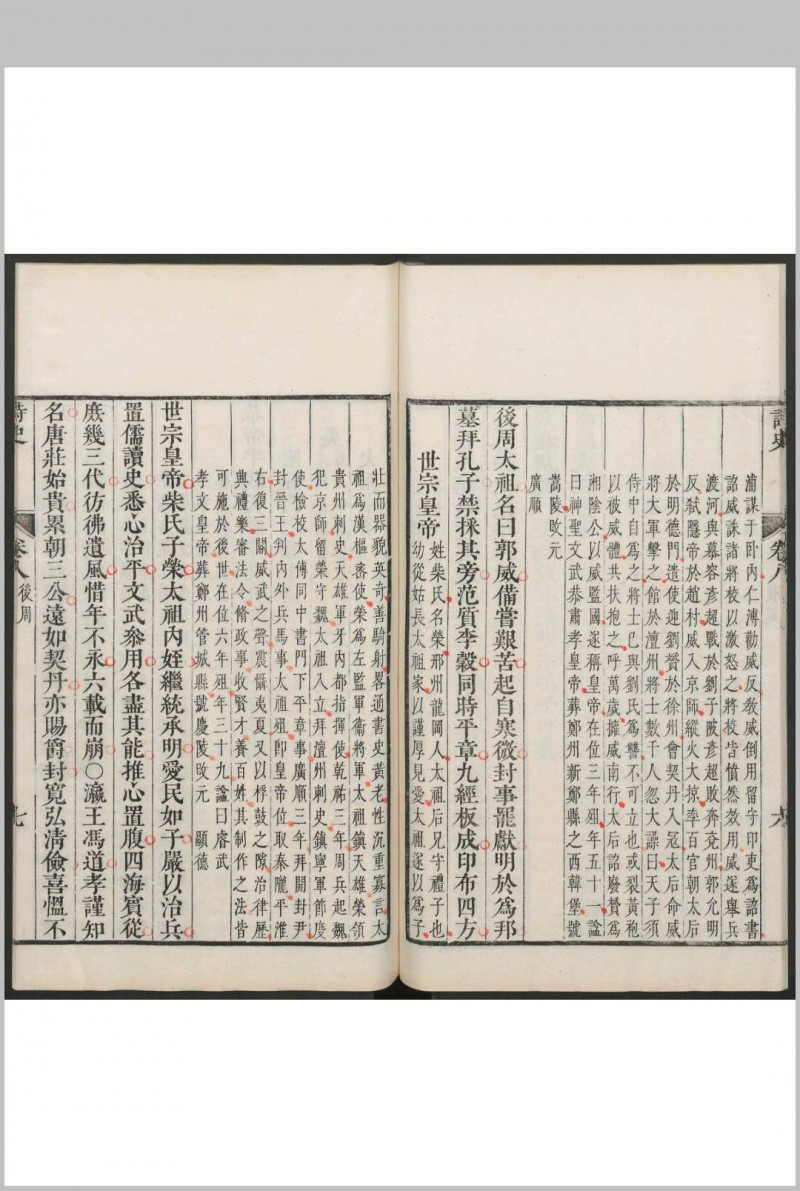 浦謀于卧内仁浦勸威反敎威倒用留守印吏爲詔書
詔威誅諸將校以激怒之將校皆憤然效用威遂舉兵
渡河與慕容彥超戰於劉子陂彥超敗奔兗州郭允明
反弑隱帝於趙村威入京師縱火大掠率百官朝太后
於明德門遣使迎劉贇於徐州會契丹入寇太后命威
將大軍擊之館於澶州將士數千人忽大譟曰天子須
侍中自爲之將士巳與劉氏爲讐不可立也或裂黃袍
以被威體共扶抱之呼萬歲擁威南行太后詔廢贇爲
湘陰公以威監國遂稱皇帝在位三年殂年五十一諡
曰神聖文武恭肅孝皇帝葬鄭州新鄭縣之西韓堡號
嵩陵攺元
廣順
後周太祖名曰郭威備嘗艱苦起自寒微封事罷獻明於爲邦
墓拜孔子禁採其旁范質李穀同時平章九經板成印布四方
世宗皇帝 姓柴氏名榮邢州龍岡人太祖后兄守禮子也
幼從姑長太祖家以謹厚見愛太祖遂以爲子
詩史
卷八
六
壯而器貌英奇善騎射畧通書史黃老性沉重寡言太
祖爲漢樞密使榮爲左監軍衞將軍太祖鎭天雄榮領
貴州刺史天雄軍牙內都指揮使乾祐三年周兵起魏
犯京師留榮守魏太祖入立拜澶州刺史鎭寧軍節度
使檢校太傅同中書門下平章事廣順三年拜開封尹
封晉王判內外兵馬事太祖殂卽皇帝位取秦隴平淮
右復三關威武之聲震懾夷夏又以桴鼓之隙治律歷
典禮樂審法令脩政事收賢才養百姓其制作之法皆
可施於後世在位六年殂年三十九諡曰睿武
孝文皇帝葬鄭州管城縣號慶陵攺元 顯德
世宗皇帝柴氏子榮太祖內姪繼統承明愛民如子嚴以治兵
置儒讀史悉心治平文武叅用各盡其能推心置腹四海賓從
庶幾三代彷彿遺風惜年不永六載而崩〇瀛王馮道孝謹知
名唐莊始貴累朝三公遠如契丹亦賜爵封寬弘清儉喜慍不
詩史
卷八
後周
七